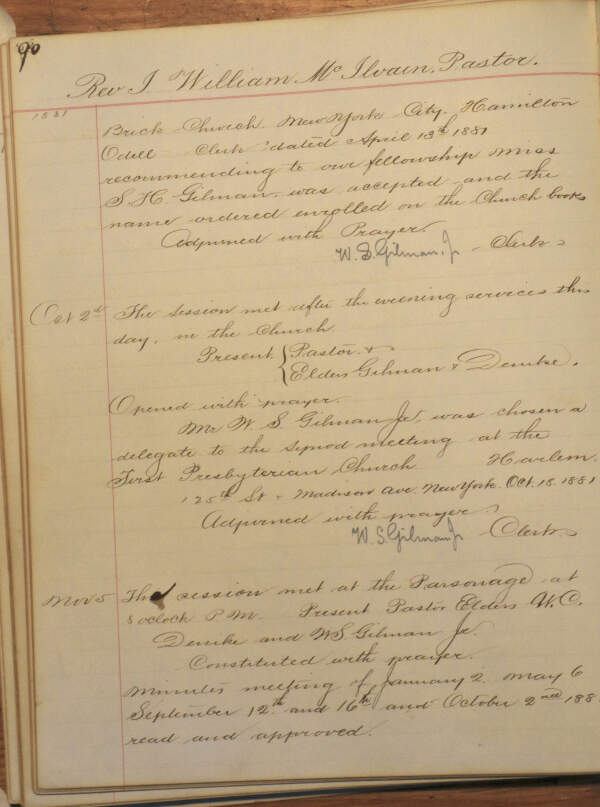 90
Rev J William Mc Ilvain, Pastor.
1881
Brick Church New York City, Hamilton
Odell Clerk dated April 13th 1881
recommending to our fellowship Miss
S. H. Gilman was accepted and the
name ordered enrolled on the Church books
Adjourned with Prayer.
W. S. Gilman, Jr Clerk
Oct 2d The session met after the evening services this
day, in the Church
Present { Pastor &
Elders Gilman & Demke.
Opened with prayer.
Mr W. S. Gilman Jr, was chosen a
delegate to the synod meeting at the
First Presbyterian Church Harlem
125th St & Madison Ave. New York. Oct. 18. 1881
Adjourned with prayer
W. S. Gilman Jr Clerk
Nov 5 The session met at the Parsonage at
8 oclock P M. Present Pastor Elders W. C.
Demke and W S. Gilman Jr.
Constituted with prayer.
Minutes meeting of January 2 May 6
September 12th and 16th and October 2nd 188
read and approved.